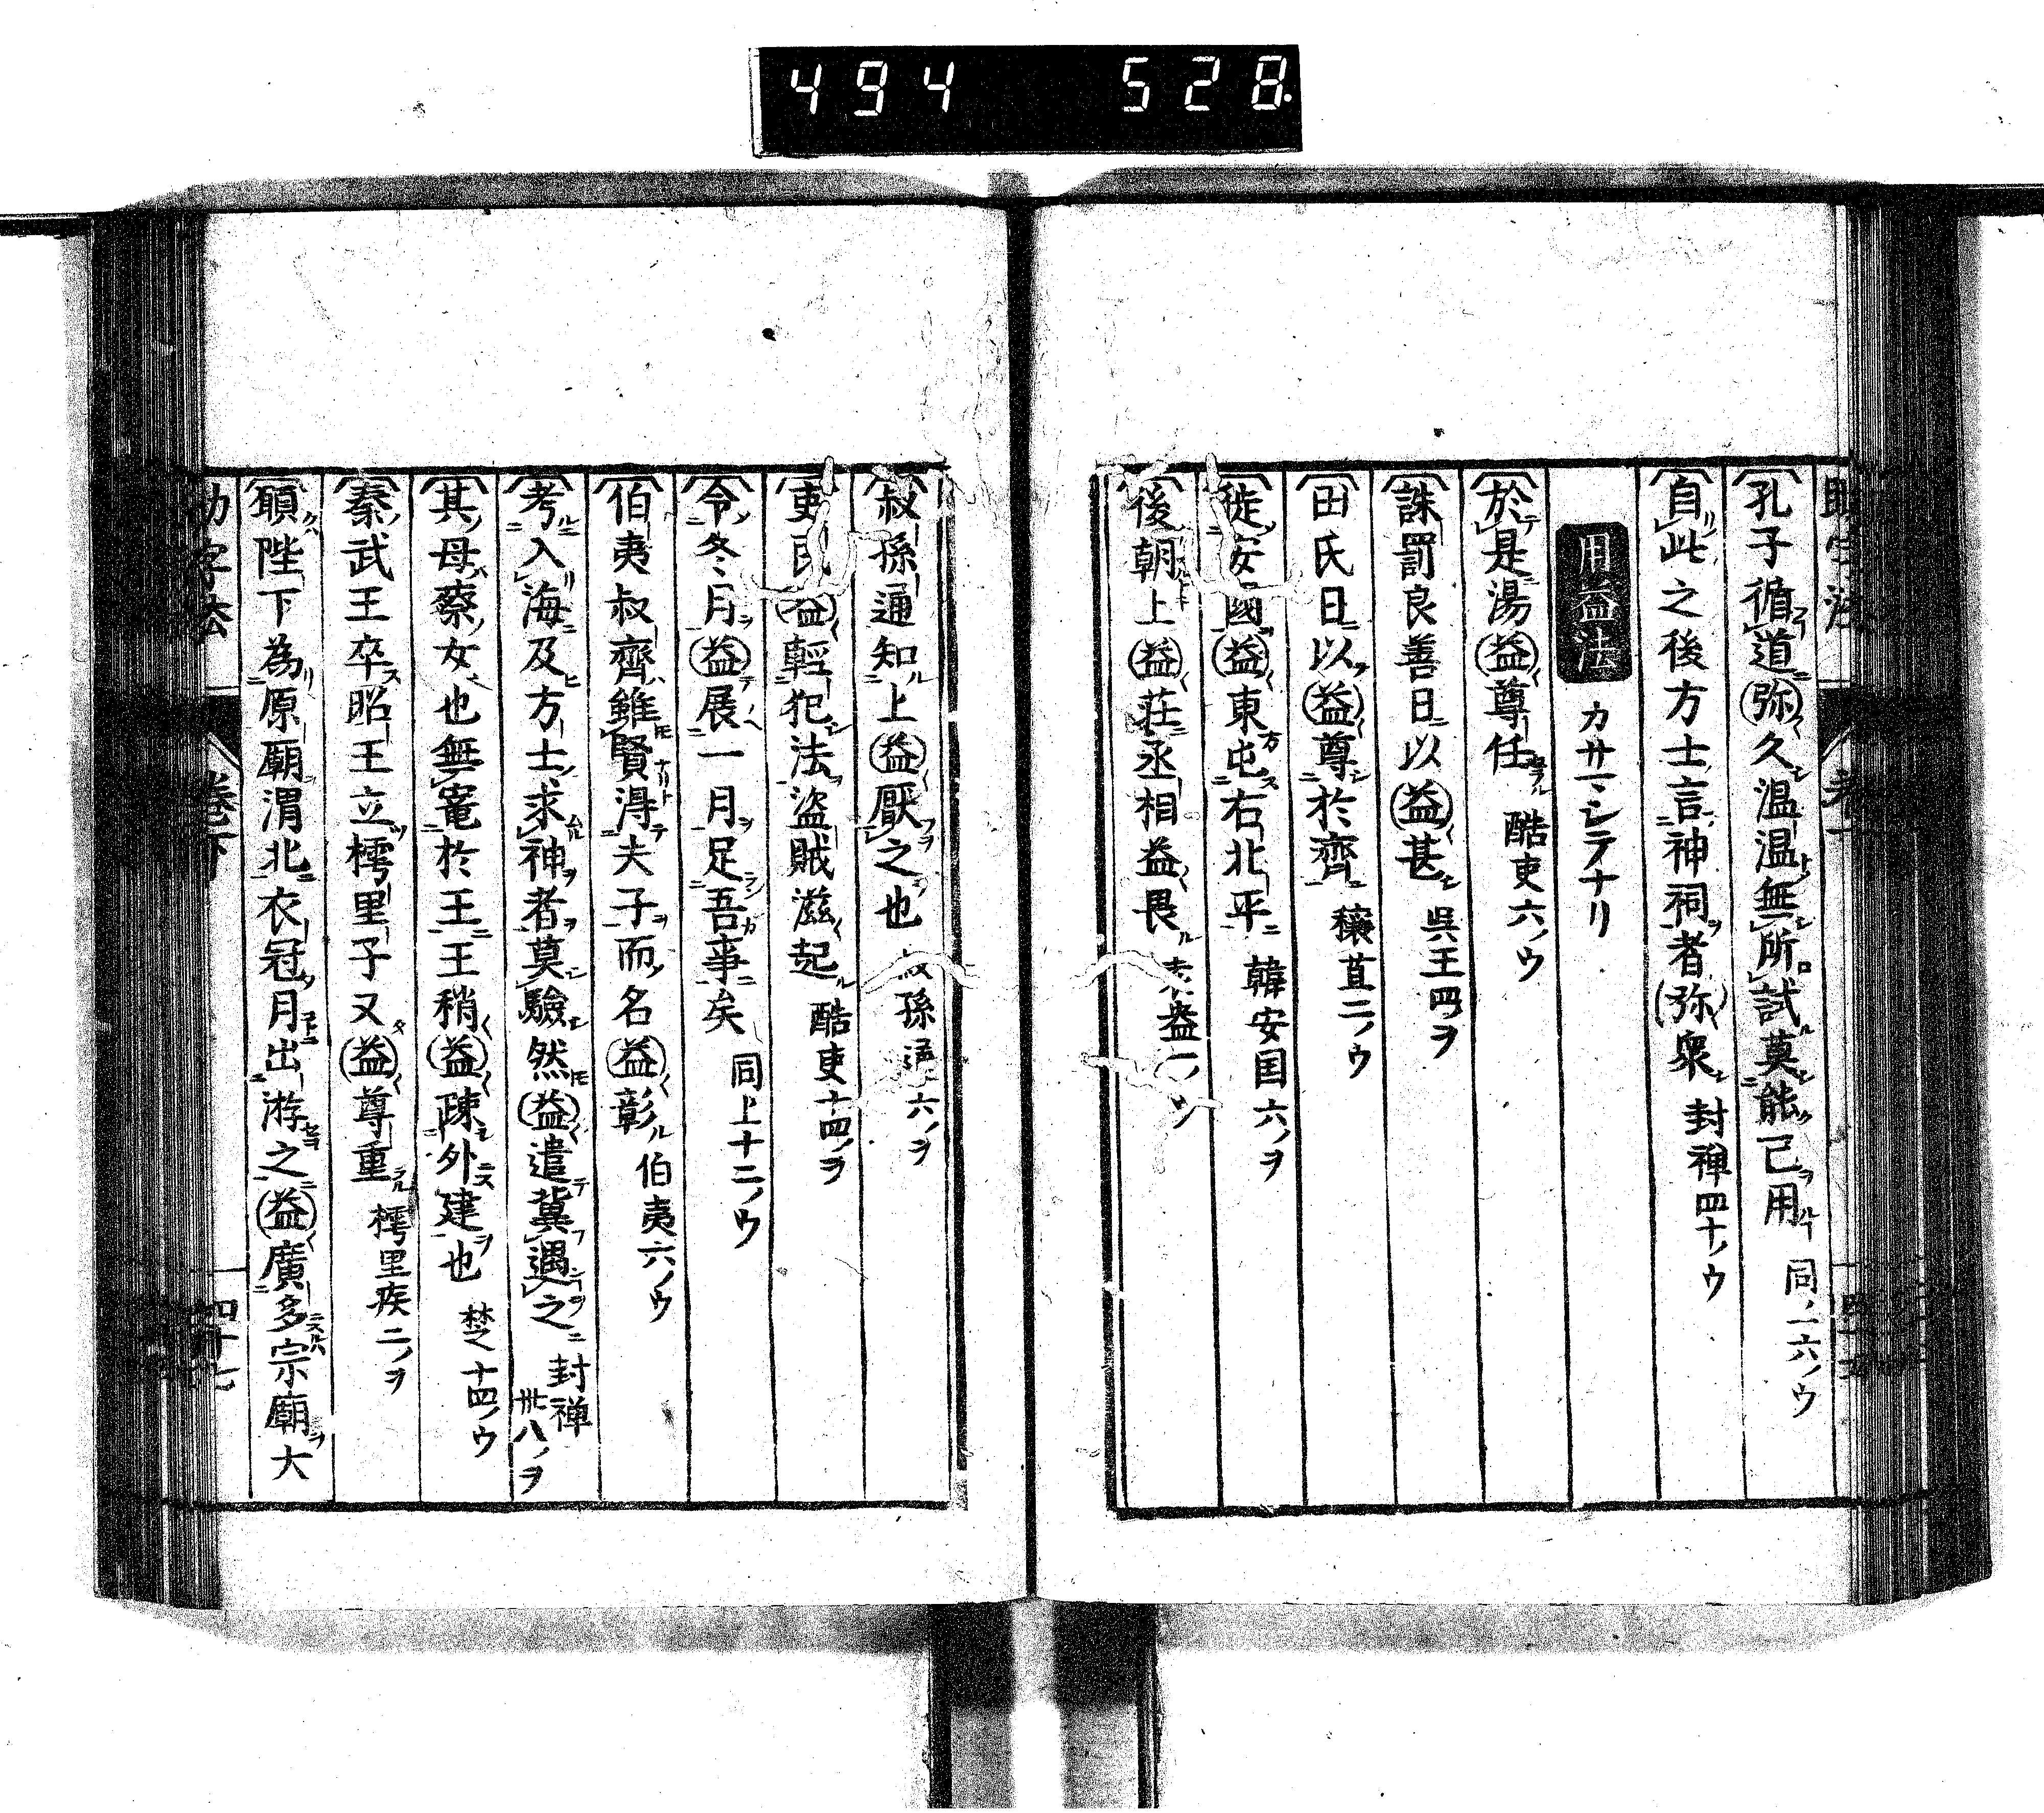 494 528
孔子循道弥久温温無所試莫能己用 同ノ一六ノウ
自此之後方士言神祠者弥衆 封禅四十ノウ
用益法 カサ子シテナリ
於是湯益尊任 酷吏六ノウ
誅罰良善日以益甚 呉王四ヲ
田氏日以益尊於齊 穰苴二ノウ
徙安國益東屯右北平 韓安国六ノヲ
後朝上益荘丞相益畏 袁盎一ノウ
叔孫通知上益厭之也 叔孫通六ノヲ
吏民益輕犯法盗賊滋起 酷吏十四ノヲ
令冬月益展一月足吾事矣 同上十二ノウ
伯夷叔齊雖賢得夫子而名益彰 伯夷六ノウ
考入海及方士求神者莫驗然益遣冀遇之 封禅卅八ノヲ
其母蔡女也無寵於王王稍益疎外建也 楚十四ノウ
秦武王卒昭王立樗里子又益尊重 樗里疾二ノヲ
願陛下為原廟渭北衣冠月出游之益廣多宗廟大
助字法 巻下 四十七